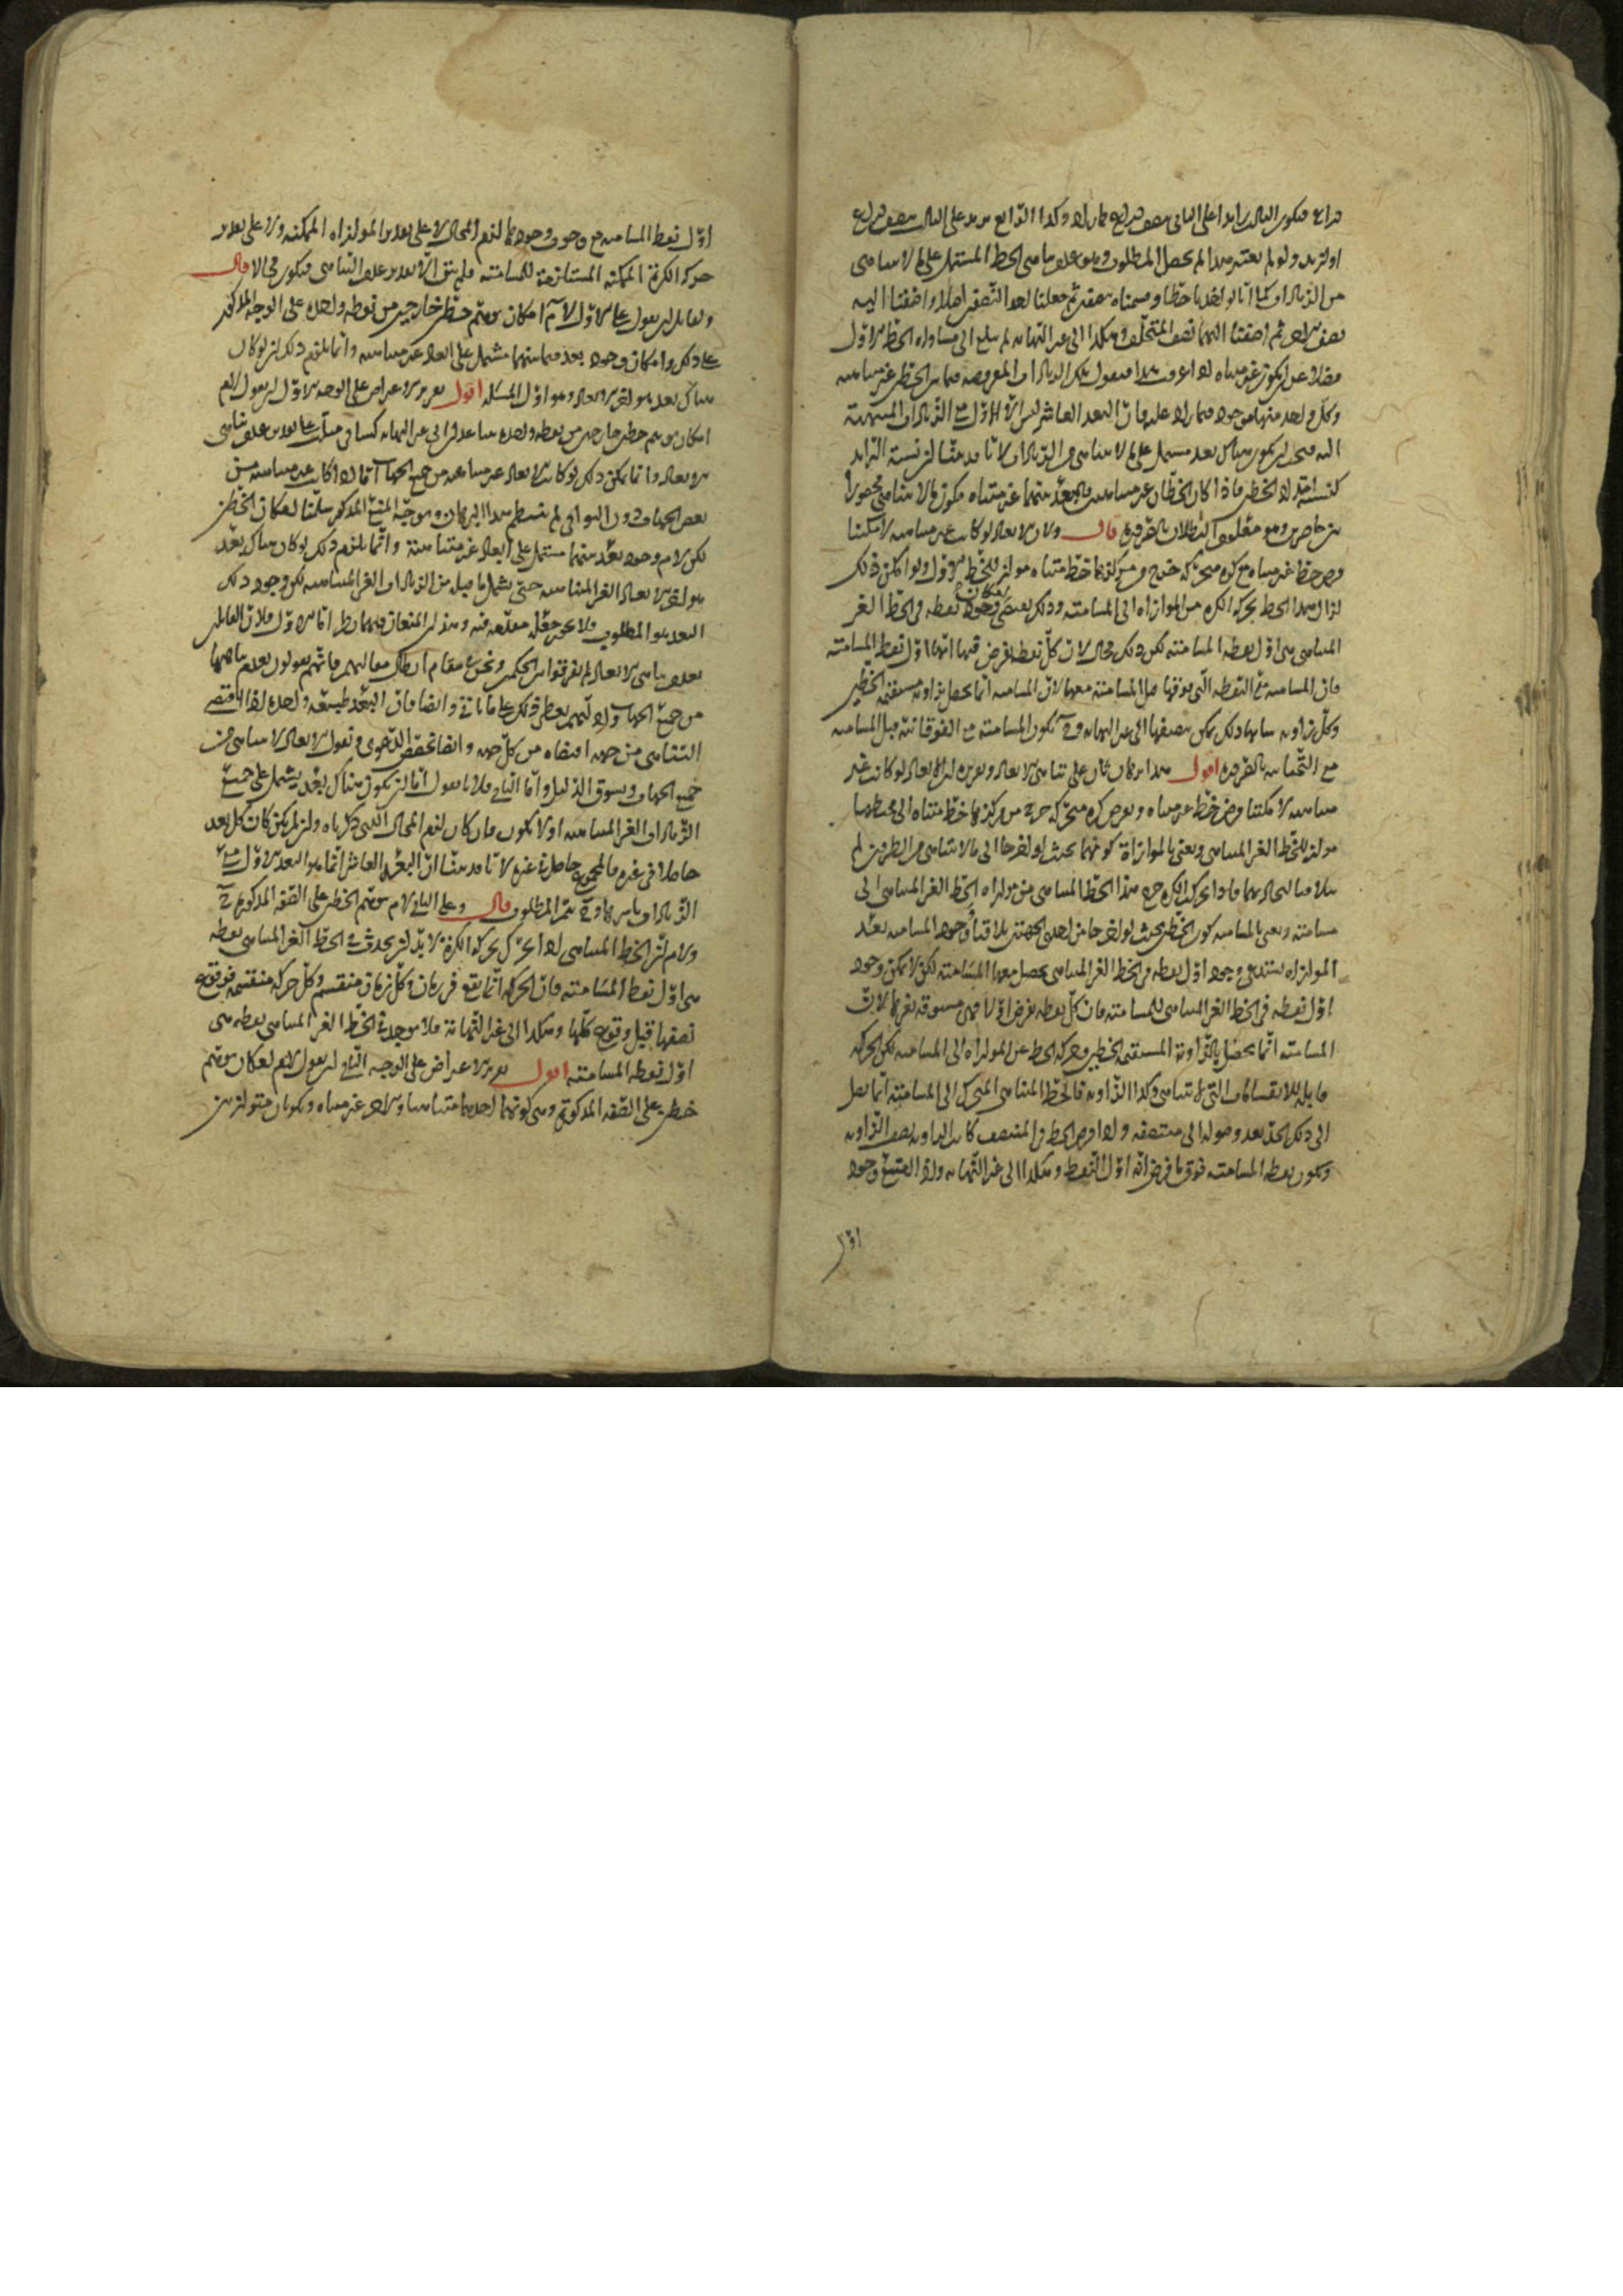 ذراع فيكون الثالث زايدا على الثانى بنصف ذراع كما زاد وكذا الرابع يزيد على الثالث بنصف ذراع
او ازيد ولو لم يعتبر هذا لم يحصل المطلوب وهو عدم تناهى الخط المشتمل على ما لا يتناهى
من الزيادات كما انا لو اخذنا خطا وقسمناه بنصفين ثم جعلنا احد النصفين اصلا واضفنا اليه
نصف الاخر ثم اضفنا اليهما نصف المتخلف وهكذا الى غير النهاية لم يبلغ الى مساواة الخط الاول
فضلا عن ان يكون غير متناه اذا عرفت هذا فنقول تلك الزيادات المفروضة فيما بين الخطين غير متناهية
وكل واحد منها موجود فيما زاد عليه فان البعد العاشر ليس الا الاول مع الزيادات المنتهية
اليه فيجب ان يكون هناك بعد مشتمل على ما لا يتناهى من الزيادات لانا قد بينا ان نسبة التزايد
كنسبة امتداد الخطين فاذا كان الخطان غير متناهيين فالبعد بينهما غير متناه فيكون ما لا يتناهى محصورا
بين حاصرين وهو معلوم البطلان بالضرورة قال ولان الابعاد لو كانت غير متناهية لامكننا
فرض خط غير متناه مع كرة متحركة خرج من مركزها خط متناه مواز للخط الاول ولو امكن ذلك
لزال هذا الخط بحركة الكرة من الموازاة الى المسامتة وذلك يقتضى امكان وجود نقطة فى الخط الغير
المتناهى هى اول نقطة المسامتة لكن ذلك محال لان كل نقطة يفرض فيها انها اول نقط المسامتة
فان المسامتة مع النقطة التى فوقها قبل المسامتة معها لان المسامتة انما يحصل بزاوية مستقيمة الخطين
وكل زاوية شانها ذلك يمكن تنصيفها الى غير النهاية وح يكون المسامتة مع الفوقانية قبل المسامتة
مع التحتانية بالضرورة اقول هذا برهان ثان على تناهى الابعاد وتقريره ان الابعاد لو كانت غير
متناهية لامكننا فرض خط غير متناه وبفرض كرة متحركة خرج من مركزها خط متناه الى محيطها
مواز للخط الغير المتناهى ونعنى بالموازاة كونهما بحيث لو اخرجا الى ما لا يتناهى من الطرفين لم
يتلاقيا لحالهما فاذا تحركت الكرة خرج هذا الخط المتناهى من موازاة الخط الغير المتناهى الى
مسامتته ونعنى بالمسامتة كون الخطين بحيث لو اخرجا من احدى الجهتين تلاقيا ووجود المسامتة بعد
الموازاة يستدعى وجود اول نقطة فى الخط الغير المتناهى يحصل معها المسامتة لكن لا يمكن وجود
اول نقطة فى الخط الغير المتناهى للمسامتة فان كل نقطة يفرض اولا فهى مسبوقة بغيرها لان
المسامتة انما يحصل بالزاوية المستقيمة الخطين وحركة الخط عن الموازاة الى المسامتة لكن الحركة
قابلة للانقسامات التى لا تتناهى وكذا الزاوية فالخط المتناهى المتحرك الى المسامتة انما يصل
الى ذلك الحد بعد وصوله الى منتصفه واذا فرض الخط فى المنتصف كانت الزاوية نصف الزاوية
ويكون نقطة المسامتة فوق ما فرض انه اول النقط وهكذا الى غير النهاية واذا امتنع وجود
اول
اول نقط المسامتة مع وجوب وجودها لزم المحال لا على تقدير الموازاة الممكنة ولا على تقدير
حركة الكرة الممكنة المستلزمة للمسامتة فلم يبق الا تقدير عدم التناهى فيكون محالا قال
ولقايل ان يقول على الاول لا نم امكان توهم خطين خارجين من نقطة واحدة على الوجه المذكور
على ذلك وامكان وجود بعد فيما بينهما مشتمل على ابعاد غير متناهية وانما يلزم ذلك ان لو كان
هناك بعد هو اخر الابعاد وهو اول المسئلة اقول تقرير الاعتراض على الوجه الاول ان يقول لا نم
امكان توهم خطين خارجين من نقطة واحدة يتباعدان الى غير النهاية كساقى مثلث على تقدير عدم تناهى
الابعاد وانما يمكن ذلك لو كانت الابعاد غير متناهية من جميع الجهات اما اذا كانت غير متناهية من
بعض الجهات دون البواقى لم ينتظم هذا البرهان وهو جهة المنع المذكور سلمنا امكان الخطين
لكن لا نم وجود بعد بينهما مشتمل على ابعاد غير متناهية وانما يلزم ذلك لو كان هناك بعد
هو اخر الابعاد الغير المتناهية حتى يشمل ما قبله من الزيادات الغير المتناهية لكن وجود ذلك
البعد هو المطلوب فلا يجوز جعله مقدمة فيه وهذان المنعان فيهما نظر اما الاول فلان القايلين
بعدم تناهى الابعاد لم يفرقوا بين الحكمين ونحن فى مقام ابطال مقالتهم فانهم يقولون بعدم تناهيها
من جميع الجهات وادلتهم يعطى ذلك على ما ياتى وايضا فان البعد طبيعة واحدة اذا اقتضى
التناهى من جهة اقتضاه من كل جهة وايضا نخصص الدعوى ونقول الابعاد لا يتناهى من
جميع الجهات ويسوق الدليل واما الثانى فلانا نقول اما ان يكون هناك بعد يشتمل على جميع
الزيادات الغير المتناهية او لا يكون فان كان لزم المحال الذى ذكرناه وان لم يكن كان كل بعد
حاصلا فى غيره فالمجموع حاصل فى غيره لانا قد بينا ان البعد العاشر انما هو البعد الاول مع
الزيادات باسرها وح يتم المطلوب قال وعلى الثانى لا نم توهم الخطين على الصفة المذكورة
ولا نم ان الخط المتناهى اذا تحرك بحركة الكرة لا بد ان يحدث فى الخط الغير المتناهى نقطة
هى اول نقط المسامتة فان الحركة انما يقع فى زمان وكل زمان منقسم وكل حركة منقسمة فوقوع
نصفها قبل وقوع كلها وهكذا الى غير النهاية فلا يوجد فى الخط الغير المتناهى نقطة هى
اول نقطة المسامتة اقول تقرير الاعتراض على الوجه الثانى ان يقول لا نم امكان توهم
خطين على الصفة المذكورة وهى كونهما احدهما متناهيا والاخر غير متناه ويكونان متوازيين